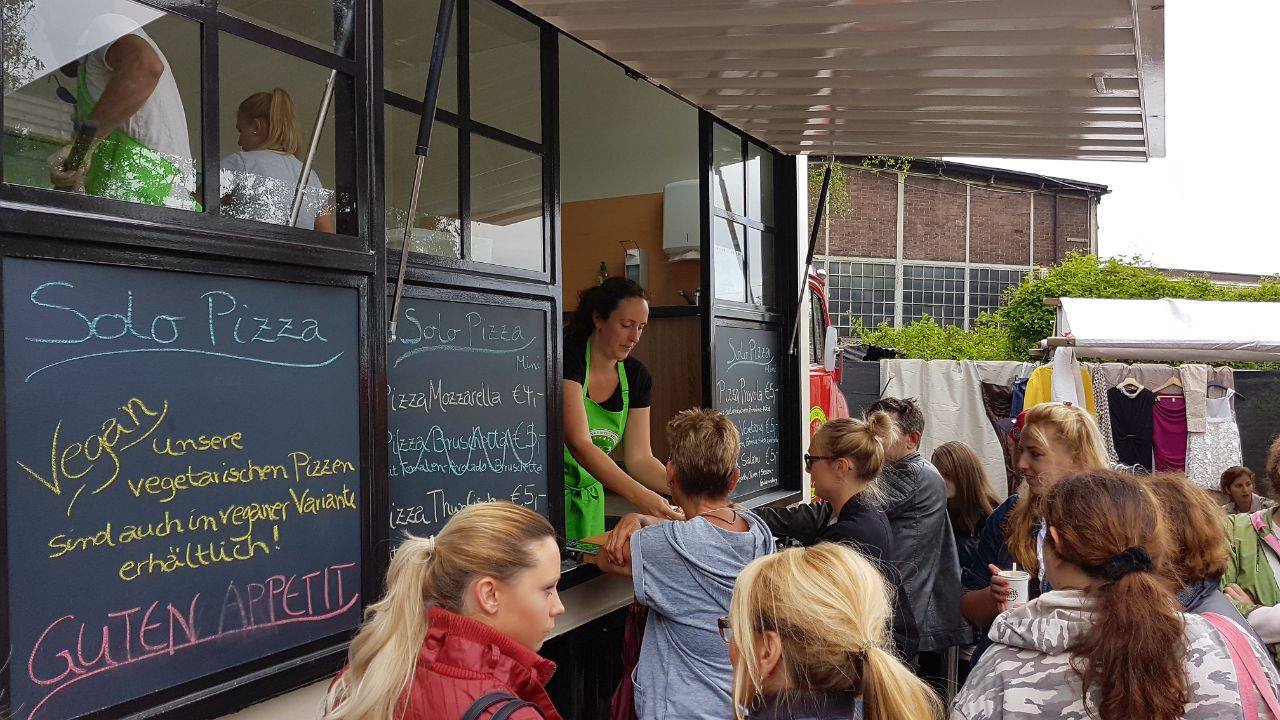 Solo Pizza
Vegan
unsere
vegetarischen Pizzen
sind auch in veganer Variante
erhältlich!
GUTEN APPETIT
Solo Pizza
Mini
Pizza Mozzarella €4,-
Pizza Bruschetta €5,-
mit Tomaten-Avocado Bruschetta
Pizza Thunfisch €5,-
Solo Pizza
Mini
Pizza Provola €5,-
€5,-
Salami €5,-